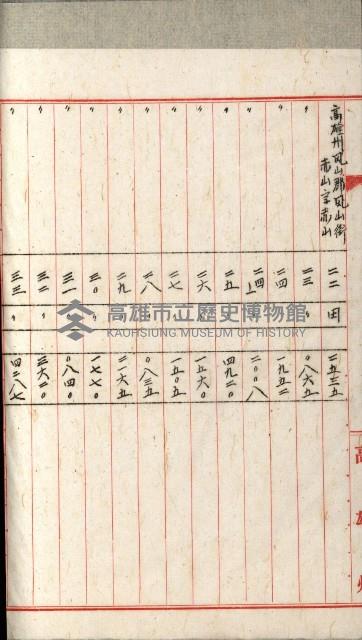 高雄州鳳山郡鳳山街
赤山字赤山
二二 田 二五三五
〃 二三 〃 〇八六五
〃 二四 〃 一九五二
〃 二四ノ一 〃 二〇〇八
〃 二五 〃 四九二〇
〃 二六 〃 一五六〇
〃 二七 〃 一五〇五
〃 二八 〃 〇八三五
〃 二九 〃 二一六五
〃 三〇 〃 一七七〇
〃 三一 〃 〇八四〇
〃 三二 〃 三六二〇
〃 三三 〃 四二八七
高雄州
高雄市立歷史博物館
KAOHSIUNG MUSEUM OF HISTORY